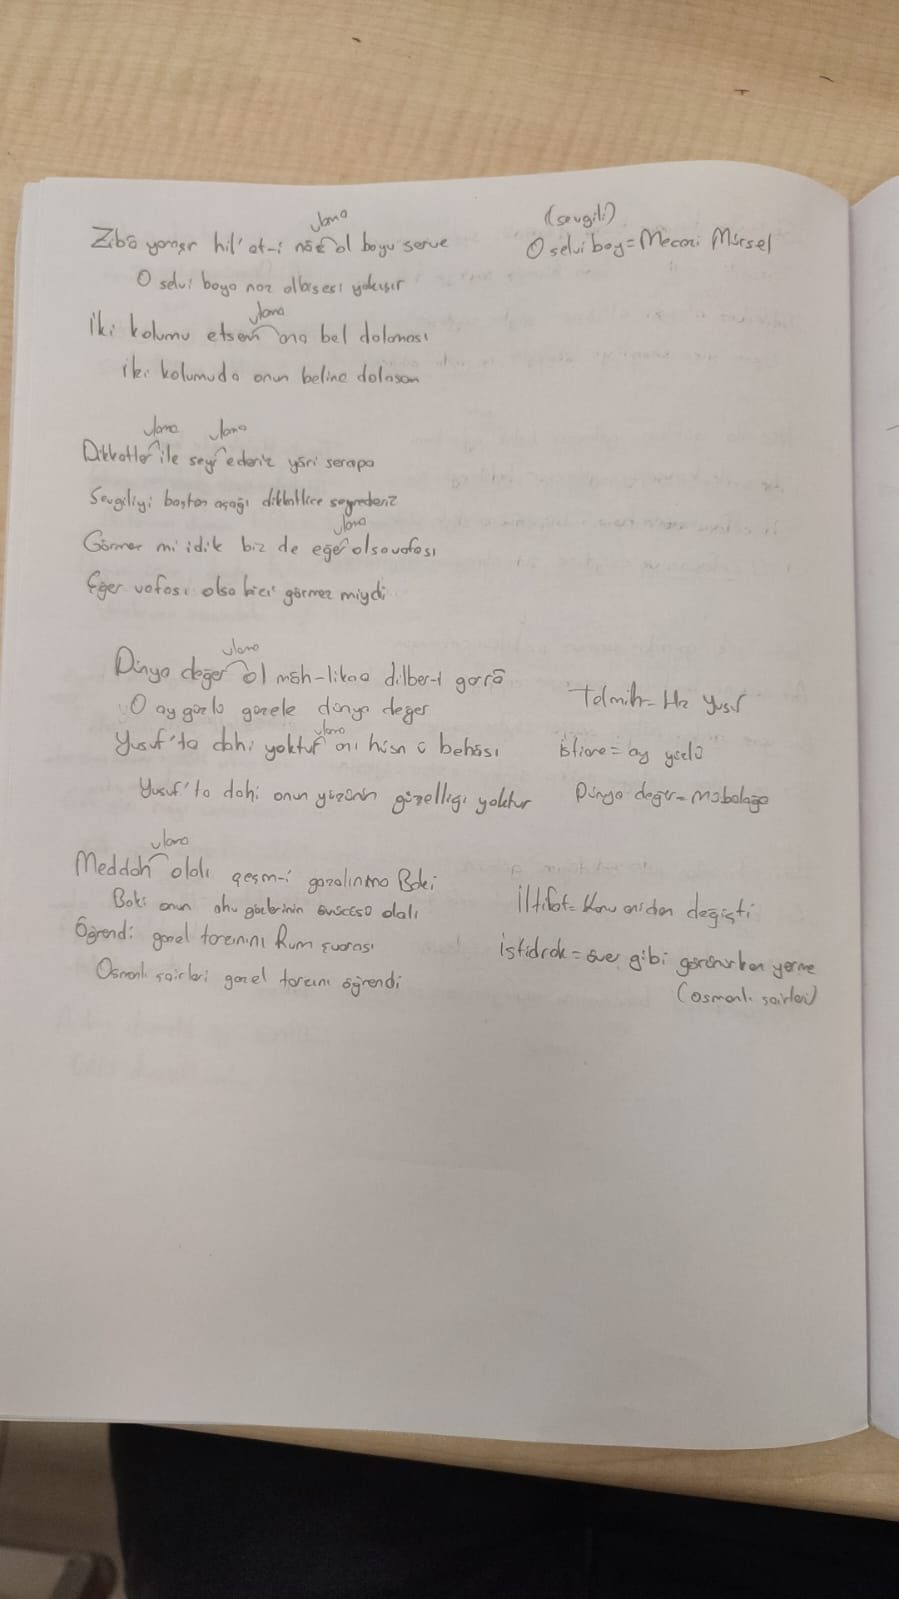 ulama
(sevgili)
Zibâ yaraşır hil'at-i nâz ol boyu serve
O selvi boy = Mecazi Mürsel
O selvi boya naz elbisesi yakışır
ulama
İki kolumu etsem ana bel dolaması
iki kolumuda onun beline dolasam
ulama ulama
Dikkatler ile seyr ederiz yâri serapa
Sevgiliyi baştan aşağı dikkatlice seyrederiz
ulama
Görmez mi idik biz de eğer olsa vefası
Eğer vefası olsa bizi görmez miydi
ulama
Dünya değer ol mâh-likaa dilber-i garâ
Telmih = Hz Yusuf
O ay yüzlü güzele dünya değer
ulama
Yusuf'ta dahi yoktur anı hüsn ü behâsı
istiare = ay yüzlü
Yusuf'ta dahi onun yüzünün güzelliği yoktur
Dünya değer = mübalağa
ulama
Meddah olalı çeşm-i gazalınına Baki
Baki onun ahu gözlerinin olalı
İltifat = Konu aniden değişti
Öğrendi gazel tarzınını Rum şuarası
istidrak = över gibi görünürken yerme
Osmanlı şairleri gazel tarzını öğrendi
(osmanlı şairleri)